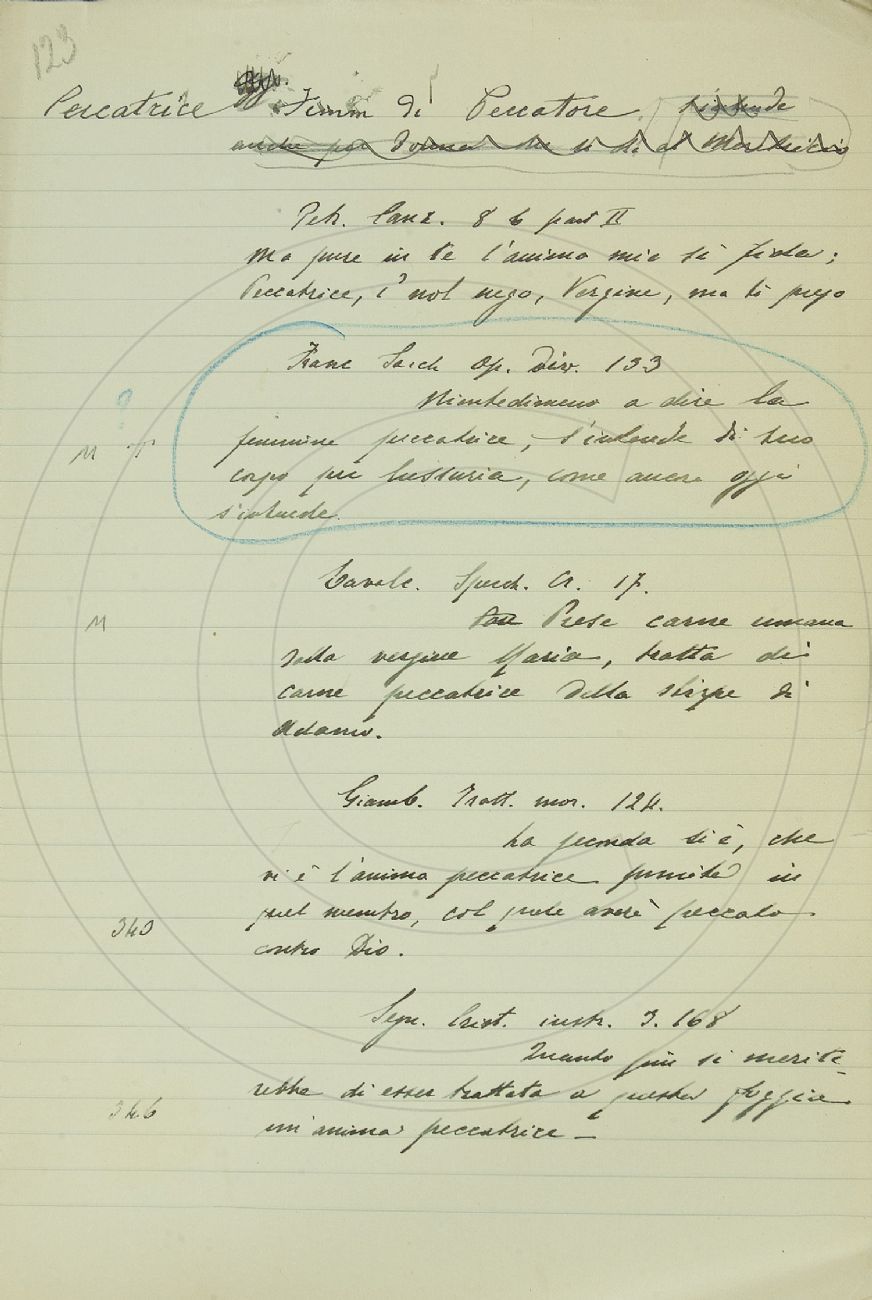 123
Peccatrice Agg. Femm di Peccatore. s'intende
anche per donna che si dà al Meretricio
Petr. Canz. 8 6 part II
Ma pure in te l'anima mia si fida;
Peccatrice, i' nol nego, Vergine, ma ti prego
Franc Sacch Op. Div. 133
Nientedimeno a dire la
femmine peccatrice, s'intende di suo
M
corpo per lussuria, come ancora oggi
s'intende.
Cavalc. Specch. Cr. 17.
Prese carne umana
M
dalla vergine Maria, tratta di
carne peccatrice della stirpe di
Adamo.
Giamb. Tratt. mor. 124.
La seconda si è, che
vi è l'anima peccatrice punita in
quel membro, col quale averà peccato
343
contro Dio.
Segn. Crist. instr. 3. 168
Quanto più si merite-
rebbe di esser trattata a questa foggia
346
un'anima peccatrice —